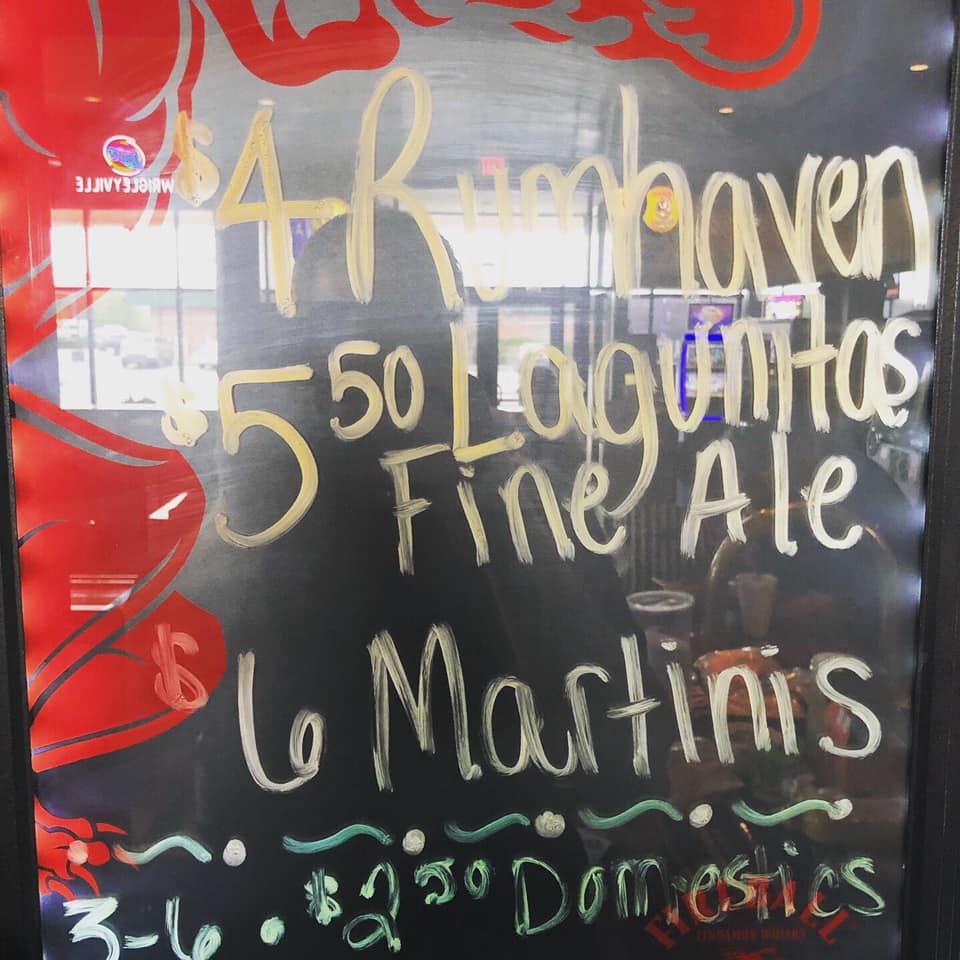 $4 Rumhaven
$5 50 Lagunitas
Fine Ale
$6 Martinis
3-6 • $2 50 Domestics
FIREBALL
CINNAMON WHISKY
WRIGLEYVILLE